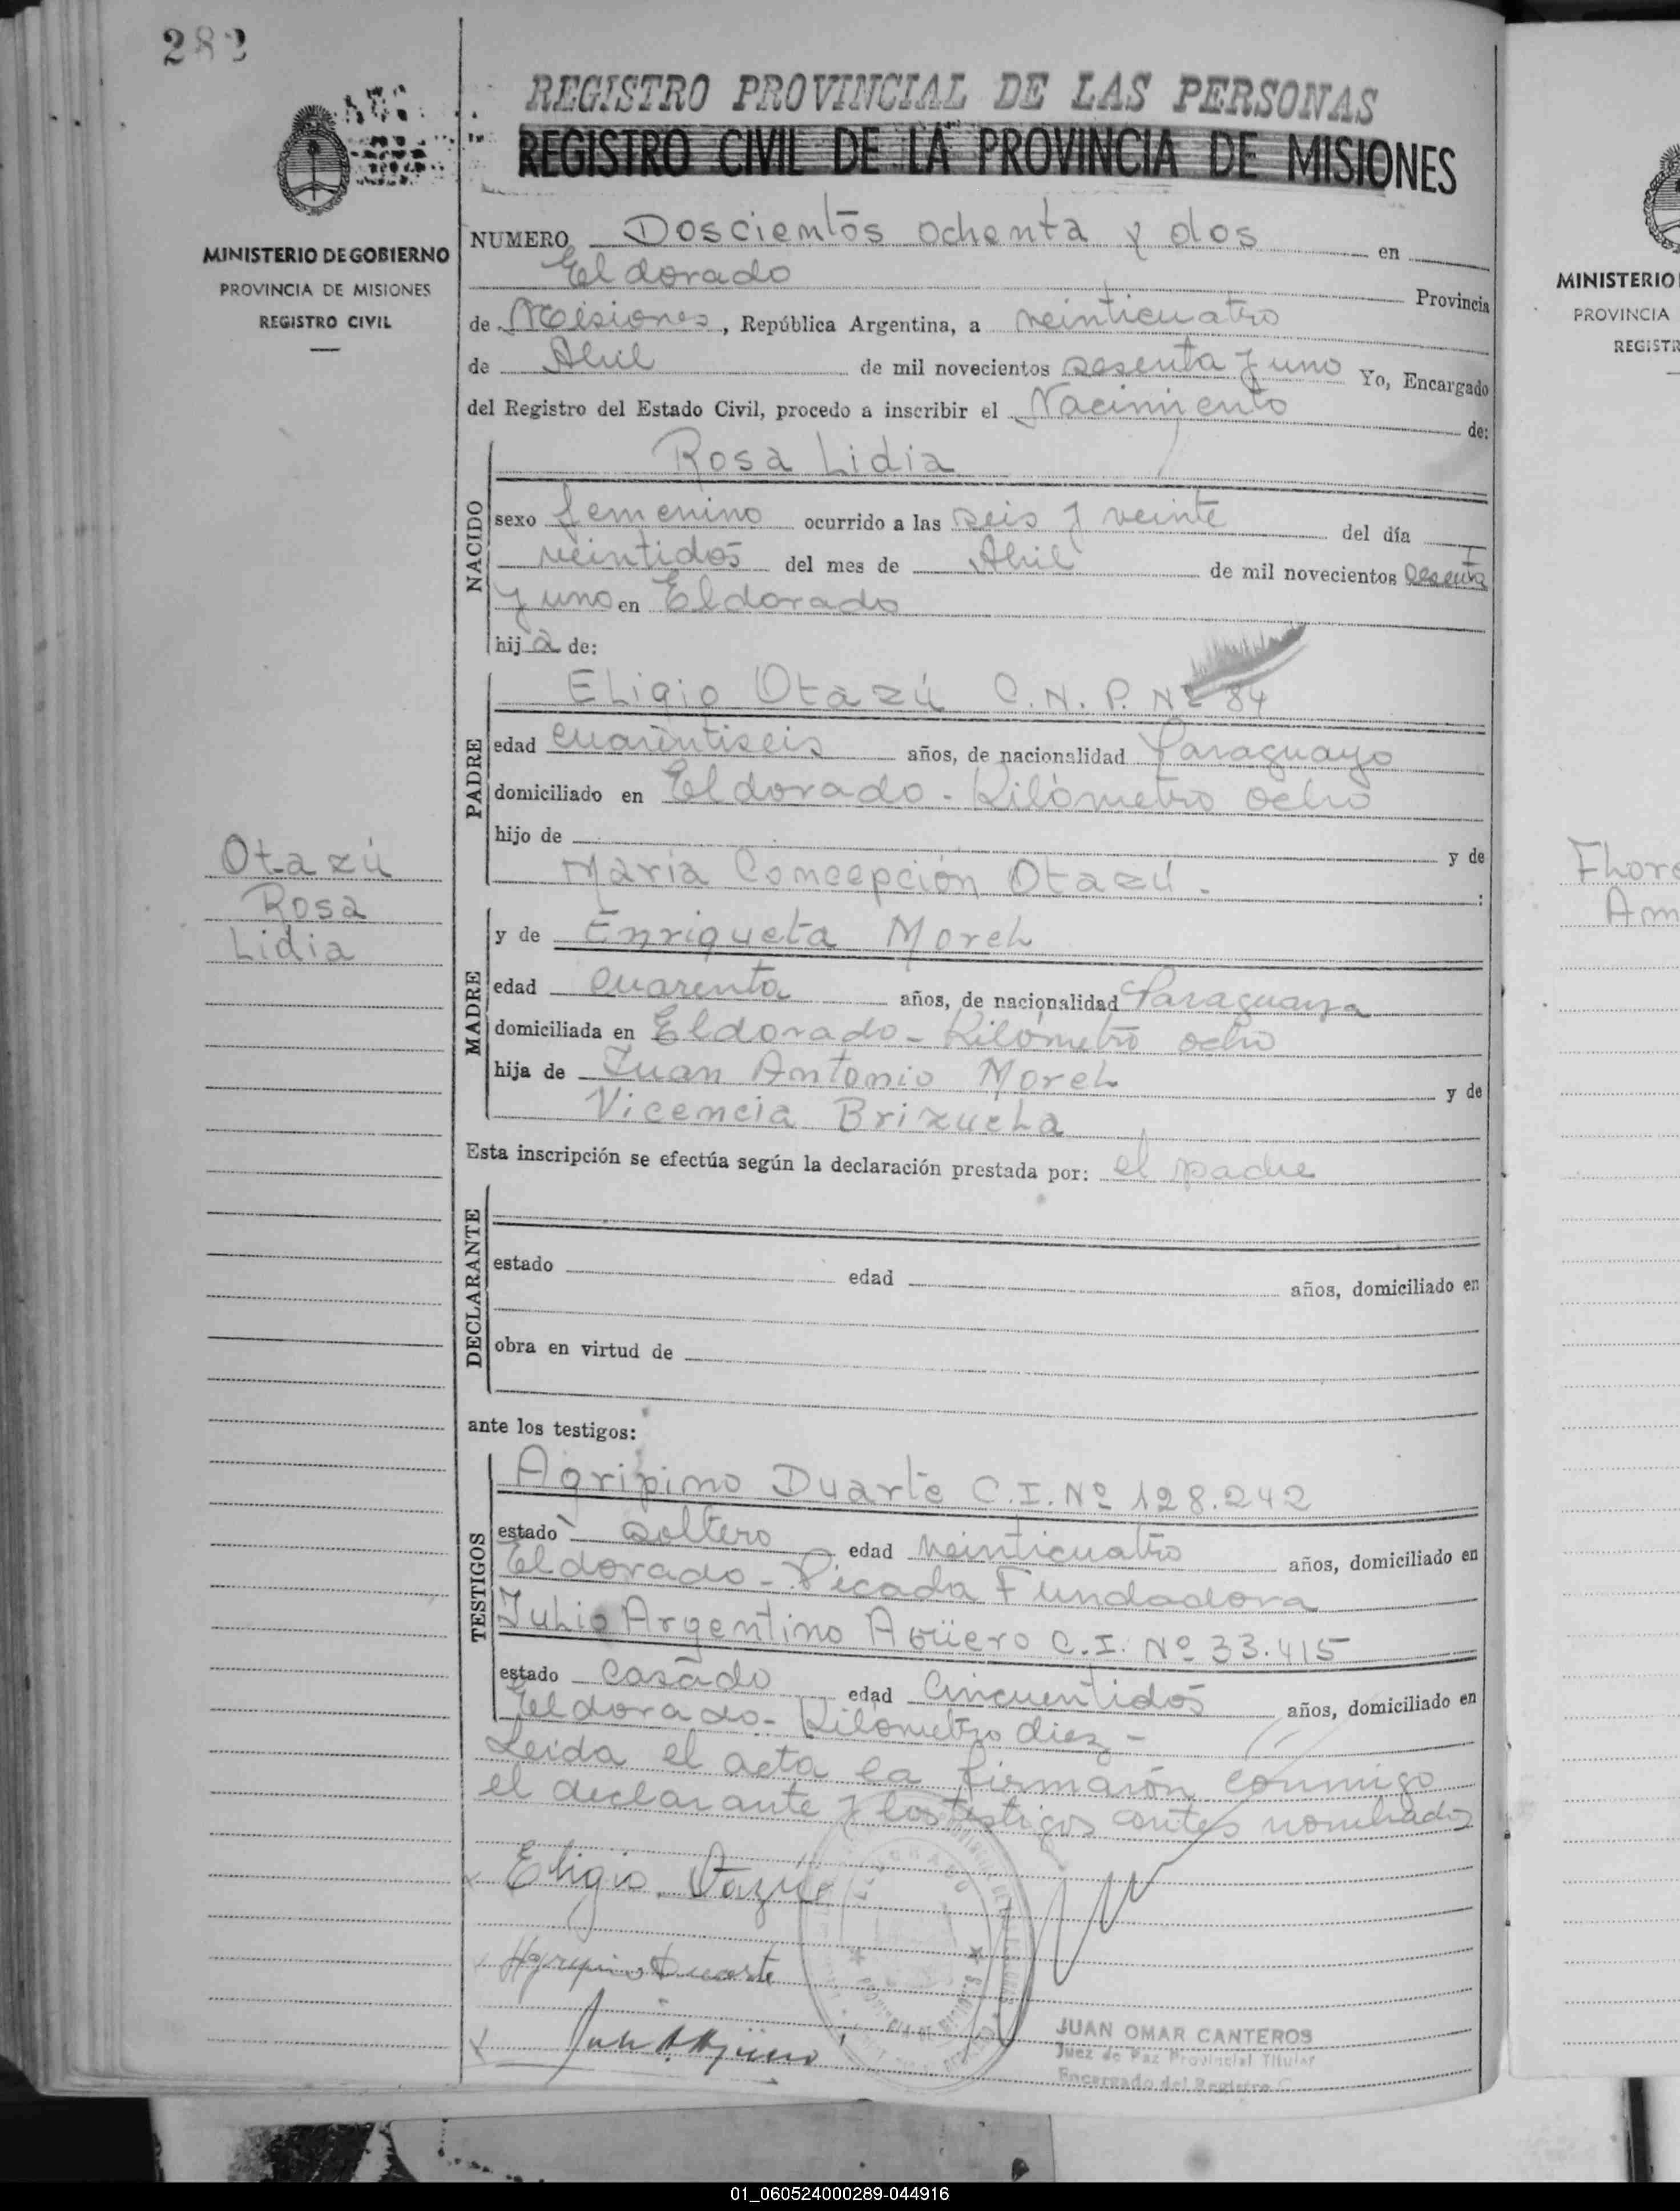 282
REGISTRO PROVINCIAL DE LAS PERSONAS
REGISTRO CIVIL DE LA PROVINCIA DE MISIONES
MINISTERIO DE GOBIERNO
PROVINCIA DE MISIONES
REGISTRO CIVIL
NUMERO Doscientos ochenta y dos en
Eldorado Provincia
de Misiones, República Argentina, a veinticuatro
de Abril de mil novecientos sesenta y uno Yo, Encargado
del Registro del Estado Civil, procedo a inscribir el Nacimiento de:
NACIDO
Rosa Lidia
sexo femenino ocurrido a las seis y veinte del día
veintidos del mes de Abril de mil novecientos sesenta
y uno en Eldorado
hija de:
PADRE
Eligio Otazú C.N.P. Nº 84
edad cuarentiseis años, de nacionalidad Paraguayo
domiciliado en Eldorado - Kilómetro ocho
hijo de y de
María Concepción Otazú.
Otazú
Rosa
Lidia
MADRE
y de Enriqueta Morel
edad cuarenta años, de nacionalidad Paraguaya
domiciliada en Eldorado - Kilómetro ocho
hija de Juan Antonio Morel y de
Vicencia Brizuela
Esta inscripción se efectúa según la declaración prestada por: el padre
DECLARANTE
estado edad años, domiciliado en
obra en virtud de
ante los testigos:
TESTIGOS
Agripino Duarte C.I. Nº 128.242
estado soltero edad veinticuatro años, domiciliado en
Eldorado - Picada Fundadora
Julio Argentino Agüero C.I. Nº 33.415
estado casado edad cincuentidos años, domiciliado en
Eldorado - Kilómetro diez -
Leida el acta la firmaron conmigo
el declarante y los testigos antes nombrados
Eligio Otazú
Agripino Duarte
JUAN OMAR CANTEROS
Juez de Paz Provincial Titular
Encargado del Registro C
MINISTERIO
PROVINCIA
REGISTR
Flore
Am
01_060524000289-044916